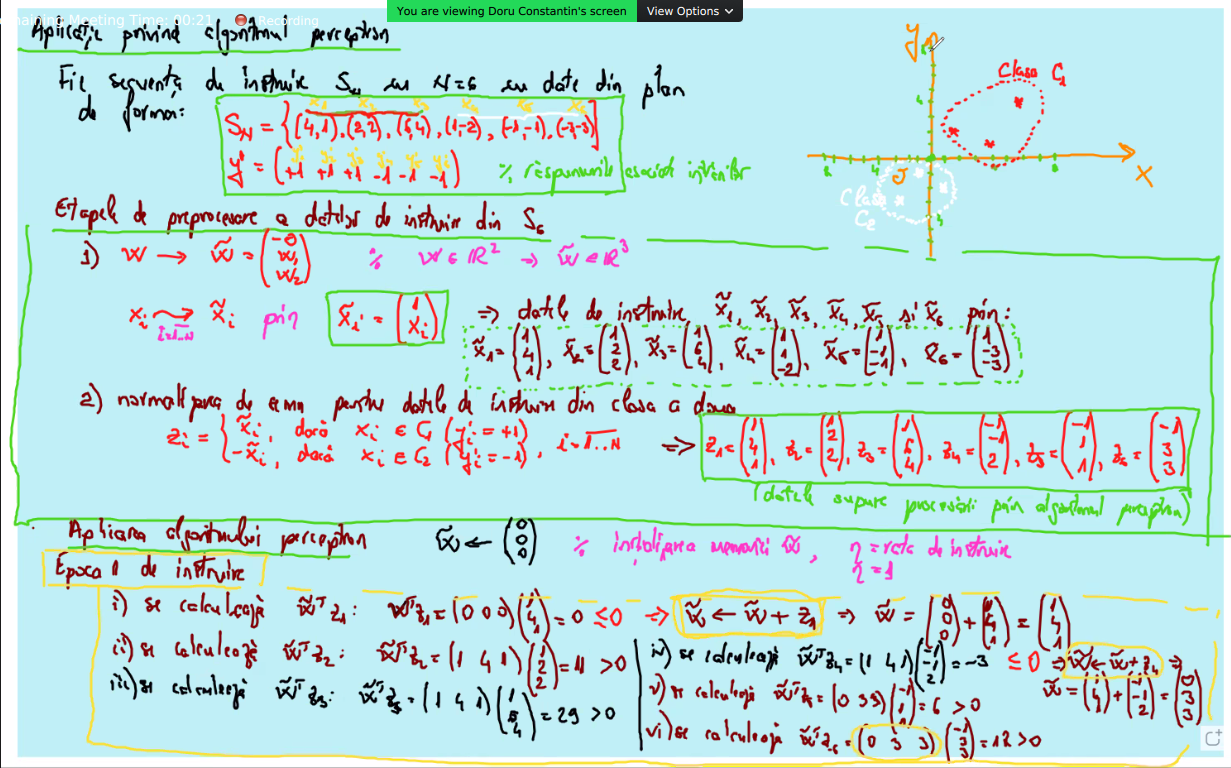 You are viewing Doru Constantin's screen View Options
Remaining Meeting Time: 00:21 Recording
Aplicație privind algoritmul perceptron
Fie secvența de instruire S_N cu N=6 cu date din plan
de forma:
x₁ x₂ x₃ x₄ x₅ x₆
S_N = {(4,1),(2,2),(6,4),(1,-2),(-1,-1),(-3,-3)}
y₁ y₂ y₃ y₄ y₅ y₆
yⁱ = (+1 +1 +1 -1 -1 -1) % răspunsurile asociate intrărilor
y
Clasa C₁
x
Clasa C₂
Etapele de preprocesare a datelor de instruire din S₆
1) w → w̃ = (-θ w₁ w₂) % w ∈ ℝ² → w̃ ∈ ℝ³
xᵢ → x̃ᵢ prin x̃ᵢ = (1 xᵢ) => datele de instruire x̃₁, x̃₂, x̃₃, x̃₄, x̃₅ și x̃₆ prin:
i=1..N
x̃₁ = (1 4 1), x̃₂ = (1 2 2), x̃₃ = (1 6 4), x̃₄ = (1 1 -2), x̃₅ = (1 -1 -1), x̃₆ = (1 -3 -3)
2) normalizarea de semn pentru datele de instruire din clasa a doua
zᵢ = { x̃ᵢ, dacă xᵢ ∈ C₁ (yᵢ = +1)
-x̃ᵢ, dacă xᵢ ∈ C₂ (yᵢ = -1), i=1..N => z₁ = (1 4 1), z₂ = (1 2 2), z₃ = (1 6 4), z₄ = (-1 -1 2), z₅ = (-1 1 1), z₆ = (-1 3 3)
(datele supuse procesării prin algoritmul perceptron)
Aplicarea algoritmului perceptron w̃ ← (0 0 0) % inițializarea memoriei w̃, η = rata de instruire
η = 1
Epoca 1 de instruire
i) se calculează w̃ᵀz₁: w̃ᵀz₁ = (0 0 0)(1 4 1) = 0 ≤0 => w̃ ← w̃ + z₁ => w̃ = (0 0 0) + (1 4 1) = (1 4 1)
ii) se calculează w̃ᵀz₂: w̃ᵀz₂ = (1 4 1)(1 2 2) = 11 >0
iii) se calculează w̃ᵀz₃: w̃ᵀz₃ = (1 4 1)(1 6 4) = 29 >0
iv) se calculează w̃ᵀz₄ = (1 4 1)(-1 -1 2) = -3 ≤0 => w̃ ← w̃ + z₄ =>
w̃ = (1 4 1) + (-1 -1 2) = (0 3 3)
v) se calculează w̃ᵀz₅ = (0 3 3)(-1 1 1) = 6 >0
vi) se calculează w̃ᵀz₆ = (0 3 3)(-1 3 3) = 18 >0